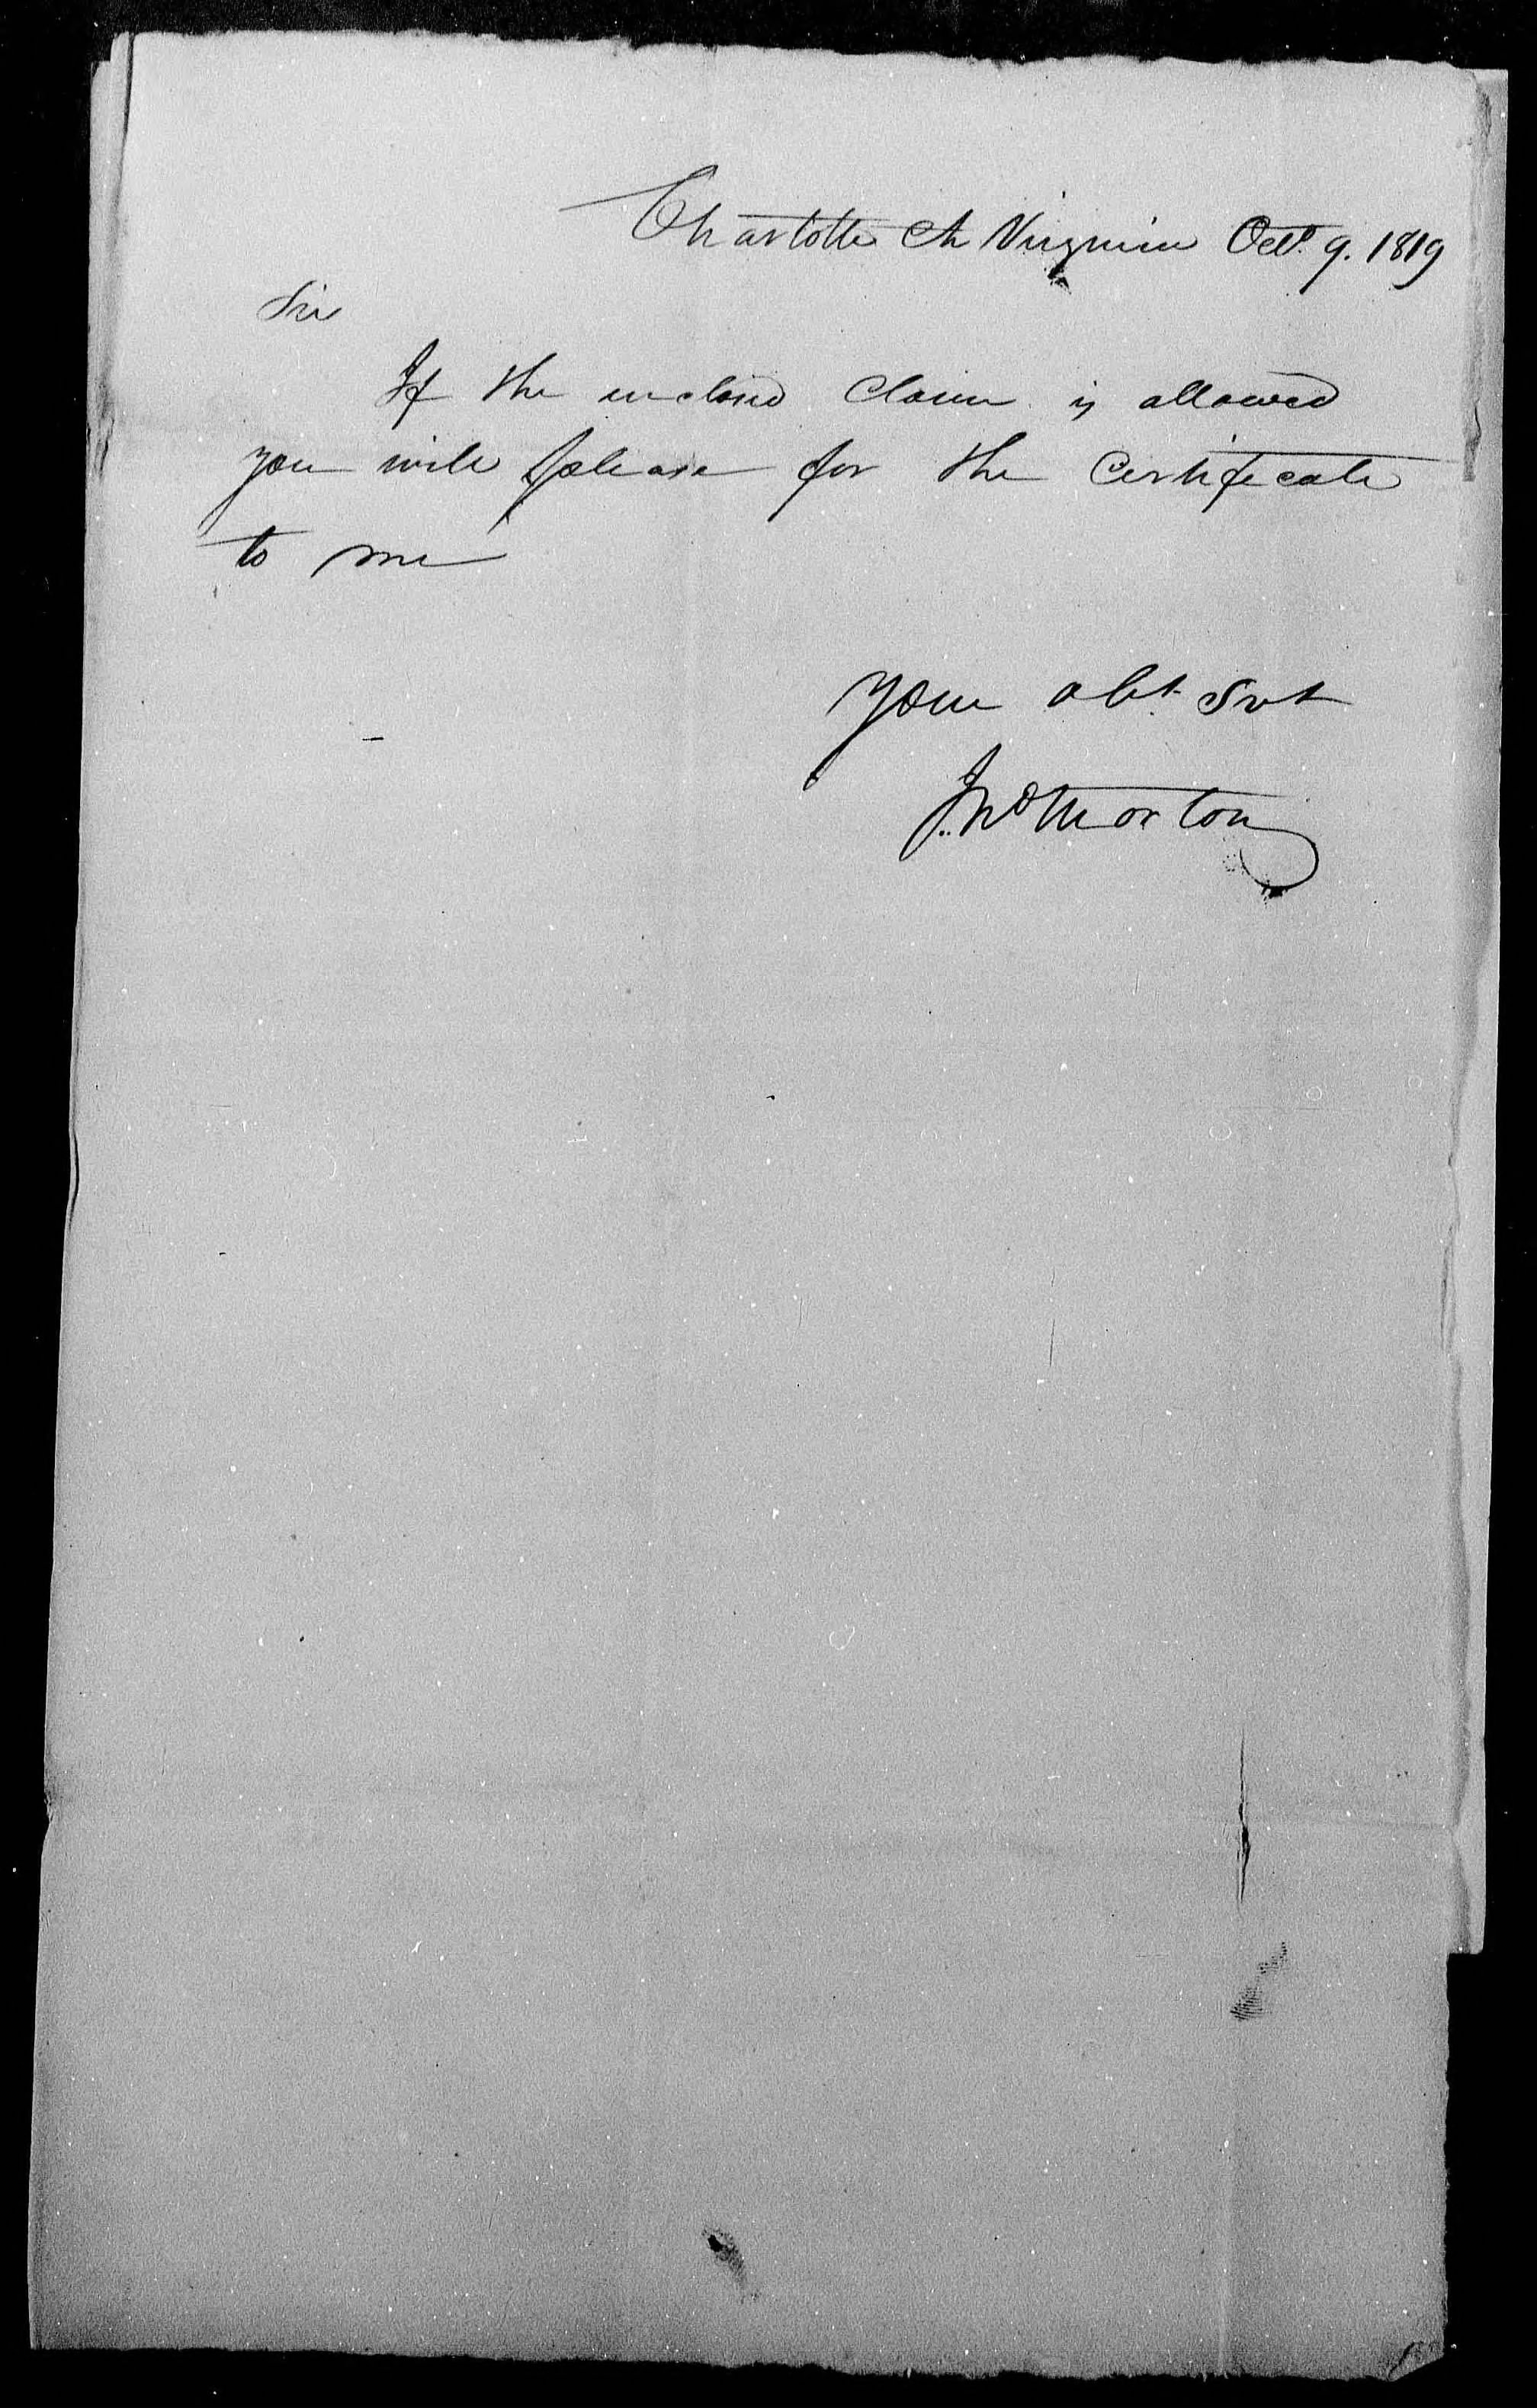 Charlotte Ch Virginia Octo. 9. 1819
Sir
If the enclosed Claim is allowed
you will please for the Certificate
to me
your obt. Svt
Jno Morton